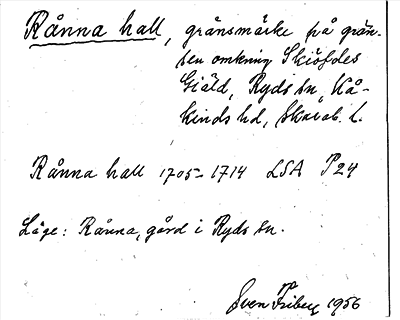 Rånna hall, gränsmärke på grän-
sen omkring Skiöfdes
Giäld, Ryds sn, Kå-
kinds hd, Skarab. l.
Rånna hall 1705-1714 LSA P24
Läge: Rånna, gård i Ryds sn.
Sven Friberg 1956